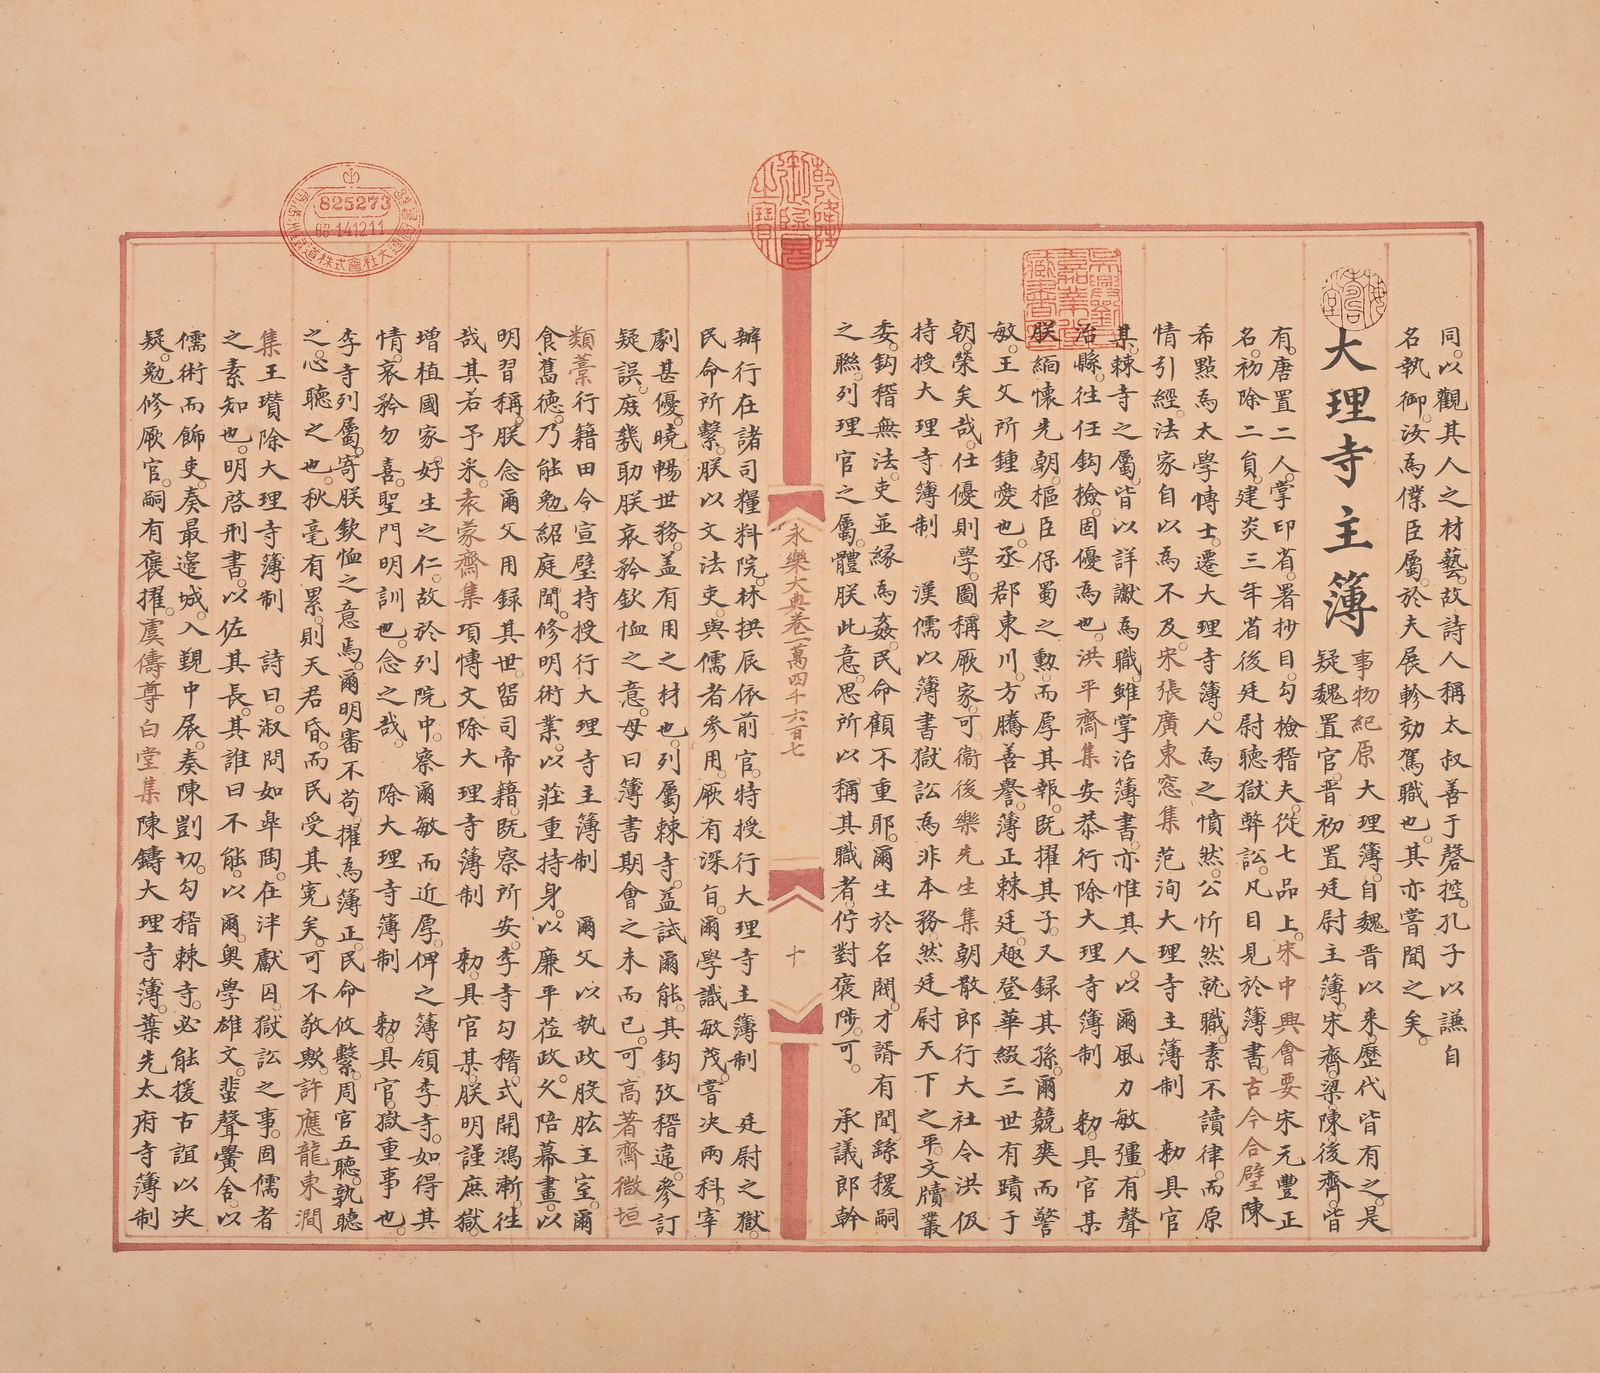 同。以觀其人之材藝。故詩人稱太叔善于磬控。孔子以謙自
名執御。汝為僕臣屬。於夫展軫効駕職也。其亦嘗聞之矣。
大理寺主簿
事物紀原大理簿。自魏晉以來。歷代皆有之。是
疑魏置官。晉初置廷尉主簿。宋齊梁陳後齊。皆
有。唐置二人。掌印省。署抄目。勾檢稽失。從七品上。宋中興會要宋元豐正
名。初除二員。建炎三年省。後廷尉聽獄弊訟。凡目見於簿書。古今合璧陳
希點為太學博士。遷大理寺簿。人為之憤然。公忻然就職。素不讀律。而原
情引經。法家自以為不及。宋張廣東窓集范洵大理寺主簿制 勑具官
某。棘寺之屬。皆以詳讞為職。雖掌治簿書。亦惟其人。以爾風力敏彊。有聲
治縣。往任鈎檢。固優為也。洪平齋集安恭行除大理寺簿制 勑。具官某
朕緬懷先朝。樞臣保蜀之勲。而厚其報。既擢其子。又録其孫。爾競爽而警
敏。王父所鍾愛也。丞郡東川。方騰善譽。簿正棘廷。趣登華綴。三世有蹟于
朝。榮矣哉。仕優則學。圖稱厥家。可。衞後樂先生集朝散郎行大社令洪伋
特授大理寺簿制 漢儒以簿書獄訟為非本務。然廷尉天下之平。文牘叢
委。鈎稽無法。吏並緣為姦。民命顧不重耶。爾生於名閥。才諝有聞。繇稷嗣
之聮。列理官之屬。體朕此意。思所以稱其職者。佇對褒陟。可。 承議郎幹
永樂大典卷二萬四千六百七
十
辦行在諸司糧料院。林拱辰依前官。特授行大理寺主簿制 廷尉之獄。
民命所繫。朕以文法吏。與儒者參用。厥有深旨。爾學識敏茂。嘗决兩科。宰
劇甚優。曉暢世務。盖有用之材也。列屬棘寺。益試爾能。其鈎攷稽違。參訂
疑誤。庶幾助朕哀矜欽恤之意。毋曰簿書期會之末而已。可。高著齋微垣
類藁行籍田令宣璧持授行大理寺主簿制 爾父以執政股肱王室。爾
食舊德。乃能勉紹庭聞。修明術業。以莊重持身。以廉平莅政。久陪幕畫。以
明習稱。朕念爾父用録其世。畱司帝籍。既察所安。李寺勾稽。式開鴻漸。往
哉其若予采。袁蒙齋集項愽文除大理寺簿制 勑。具官某。朕明謹庶獄。
增植國家。好生之仁。故於列院中。察爾敏而近厚。俾之簿領李寺。如得其
情。哀矜勿喜。聖門明訓也。念之哉。 除大理寺簿制 勑。具官。獄重事也。
李寺列屬。寄朕欽恤之意焉。爾明審不苟。擢為簿正。民命攸繫。周官五聽。孰聽
之。心聽之也。秋毫有累。則天君昏。而民受其寃矣。可不敬歟。許應龍東澗
集王瓚除大理寺簿制 詩曰。淑問如皐陶。在泮獻囚。獄訟之事。固儒者
之素知也。明啓刑書。以佐其長。其誰曰不能。以爾奥學雄文。蜚聲黌舍。以
儒術而飾吏。奏最邊城。入覲中扆。奏陳剴切。勾稽棘寺。必能援古誼以决
疑。勉修厥官。嗣有褒擢。虞儔尊白堂集陳鑄大理寺簿。葉先太府寺簿制
825273